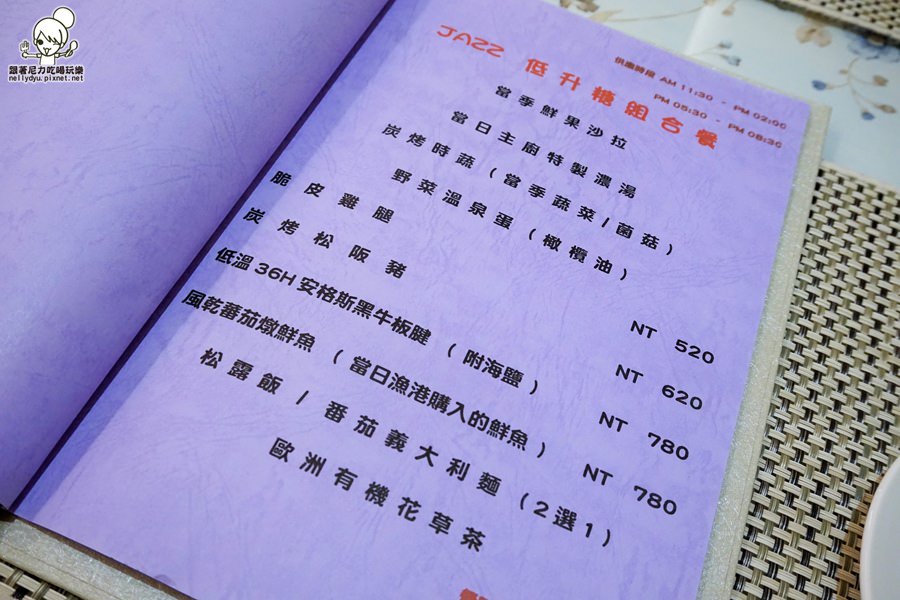 跟著尼力吃喝玩樂
nellydyu.pixnet.net
JAZZ 低升糖組合餐
供應時段 AM 11:30 - PM 02:00
PM 05:30 - PM 08:30
當季鮮果沙拉
當日主廚特製濃湯
炭烤時蔬（當季蔬菜/菌菇）
野菜溫泉蛋（橄欖油）
脆皮雞腿 NT 520
炭烤松阪豬 NT 620
低溫36H安格斯黑牛板腱（附海鹽） NT 780
風乾蕃茄燉鮮魚（當日漁港購入的鮮魚） NT 780
松露飯 / 番茄義大利麵（2選1）
歐洲有機花草茶